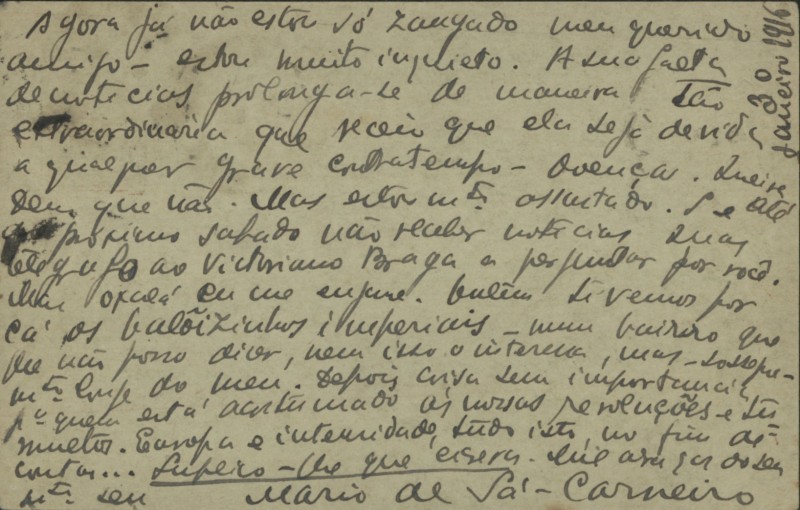 Agora já não estou só zangado meu querido
amigo - estou muito inquieto. A sua falta
de noticias prolonga-se de maneira tão
extraordinaria que receio que ela seja devida
a qualquer grave contratempo - doenças. Queira
Deus que não. Mas estou mto assustado. Se até
proximo sabado não receber noticias suas
telegrafo ao Victoriano Braga a perguntar por você.
Mas oxalá eu me engane. Ontem tivemos por
cá os balõizinhos imperiais - num bairro que
lhe não posso dizer, nem isso o interessa, mas - sossegue -
mto longe do meu. Depois coisa sem importancia
pa quem está acostumado ás nossas revoluções e tu
multos. Europa e intensidade, tudo isto, no fim de
contas... Suplico-lhe que escreva. Mil abraços do seu
mto seu Mario de Sá-Carneiro
30
Janeiro 1916